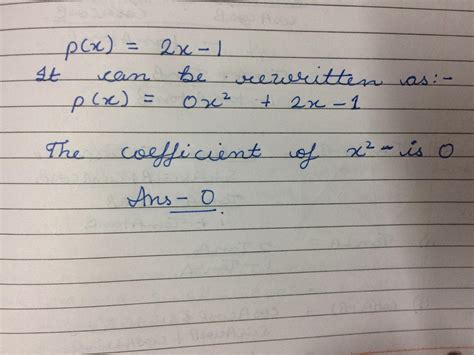 p(x) = 2x-1
It can be rewritten as:-
p(x) = 0x² + 2x-1
The coefficient of x² - is 0
Ans - 0.